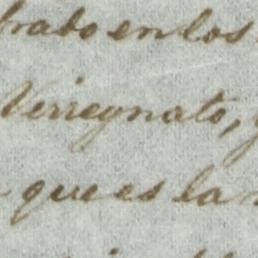 brado en los
Virreynato, y
que es la